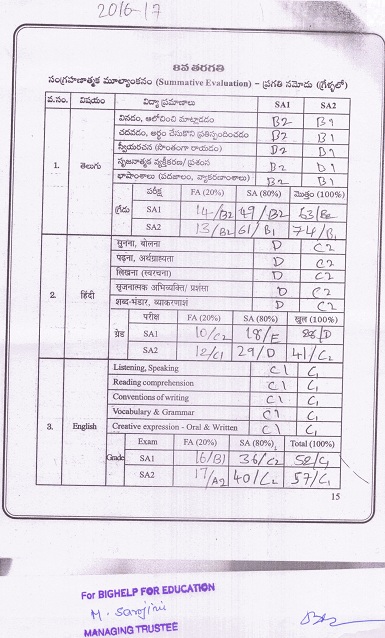 2016-17
8వ తరగతి
సంగ్రహణాత్మక మూల్యాంకనం (Summative Evaluation) – ప్రగతి నమోదు (గ్రేళ్ళలో)
వ.సం. విషయం విద్యా ప్రమాణాలు SA1 SA2
1. తెలుగు
వినడం, ఆలోచించి మాట్లాడడం B2 B1
చదవడం, అర్థం చేసుకొని ప్రతిస్పందించడం B2 B1
స్వీయరచన (సొంతంగా రాయడం) B2 B1
సృజనాత్మక వ్యక్తీకరణ/ ప్రశంస B2 B1
భాషాంశాలు (పదజాలం, వ్యాకరణాంశాలు) B2 B1
గ్రేడు పరీక్ష FA (20%) SA (80%) మొత్తం (100%)
SA1 14/B2 49/B2 63/B2
SA2 13/B2 61/B1 74/B1
2. हिंदी
सुनना, बोलना D C2
पढ़ना, अर्थग्राह्यता D C2
लिखना (स्वरचना) D C2
सृजनात्मक अभिव्यक्ति/ प्रशंसा D C2
शब्द-भंडार, व्याकरणांश D C2
ग्रेड परीक्ष FA (20%) SA (80%) कुल (100%)
SA1 10/C2 18/E 28/D
SA2 12/C1 29/D 41/C2
3. English
Listening, Speaking C1 C1
Reading comprehension C1 C1
Conventions of writing C1 C1
Vocabulary & Grammar C1 C1
Creative expression - Oral & Written C1 C1
Grade Exam FA (20%) SA (80%) Total (100%)
SA1 16/B1 36/C2 52/C1
SA2 17/A2 40/C2 57/C1
15
For BIGHELP FOR EDUCATION
M. Sarojini
MANAGING TRUSTEE